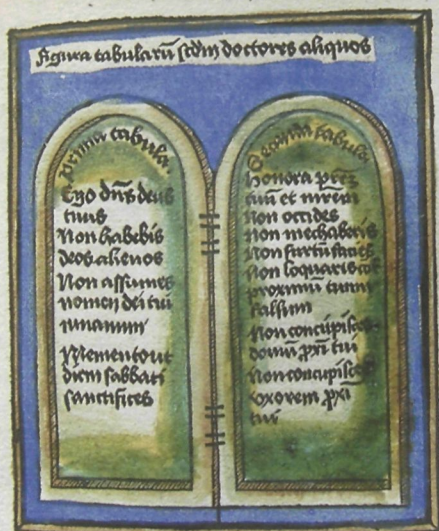 figura tabularū scdm doctores aliquos
Prima tabula.
Ego dn̄s deus
tuus
Non habebis
deos alienos
Non assumes
nomen dei tui
inuanum
Memento ut
diem sabbati
sanctifices
Secunda tabula
Honora prēm
tuū et mrēm
Non occides
Non mechaberis
Non furtū facies
Non loquaris
proximū tuum
falsum
Non concupisces
domū proxī tui
Non concupisces
vxorem proxī
tui